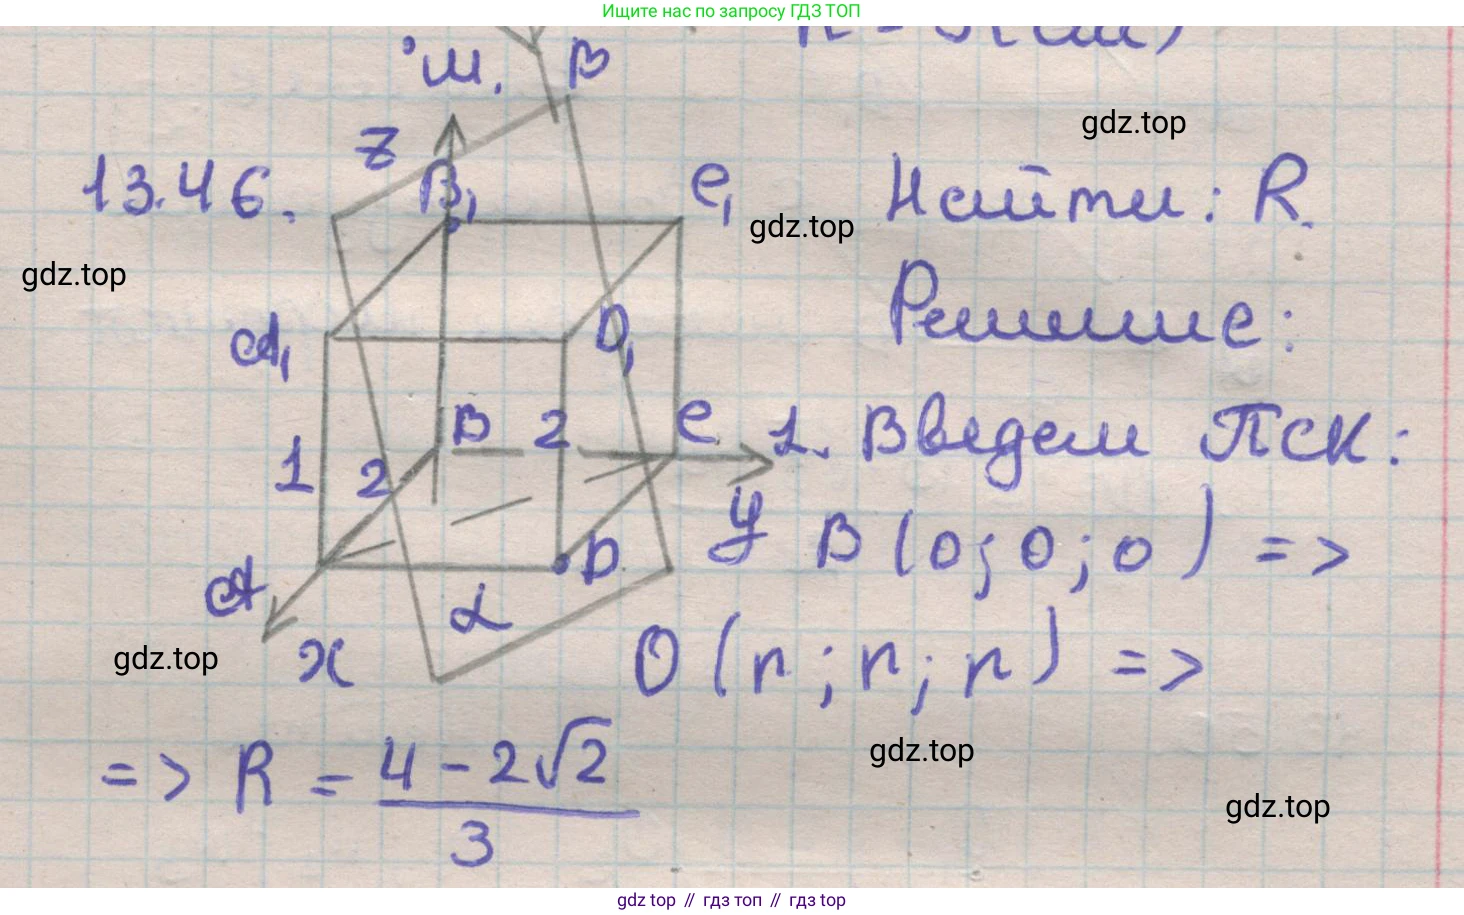 Ищите нас по запросу ГДЗ ТОП
ш.
β
gdz.top
z
13.46.
B₁
C₁
Найти: R.
gdz.top
gdz.top
A₁
D₁
Решение:
1
2
B
2
C
1. Введем ПСК:
y
B (0; 0; 0) =>
A
D
2
x
O (r; r; r) =>
gdz.top
=> R = (4 - 2√2)/3
gdz.top
gdz.top
gdz top // гдз топ // гдз top